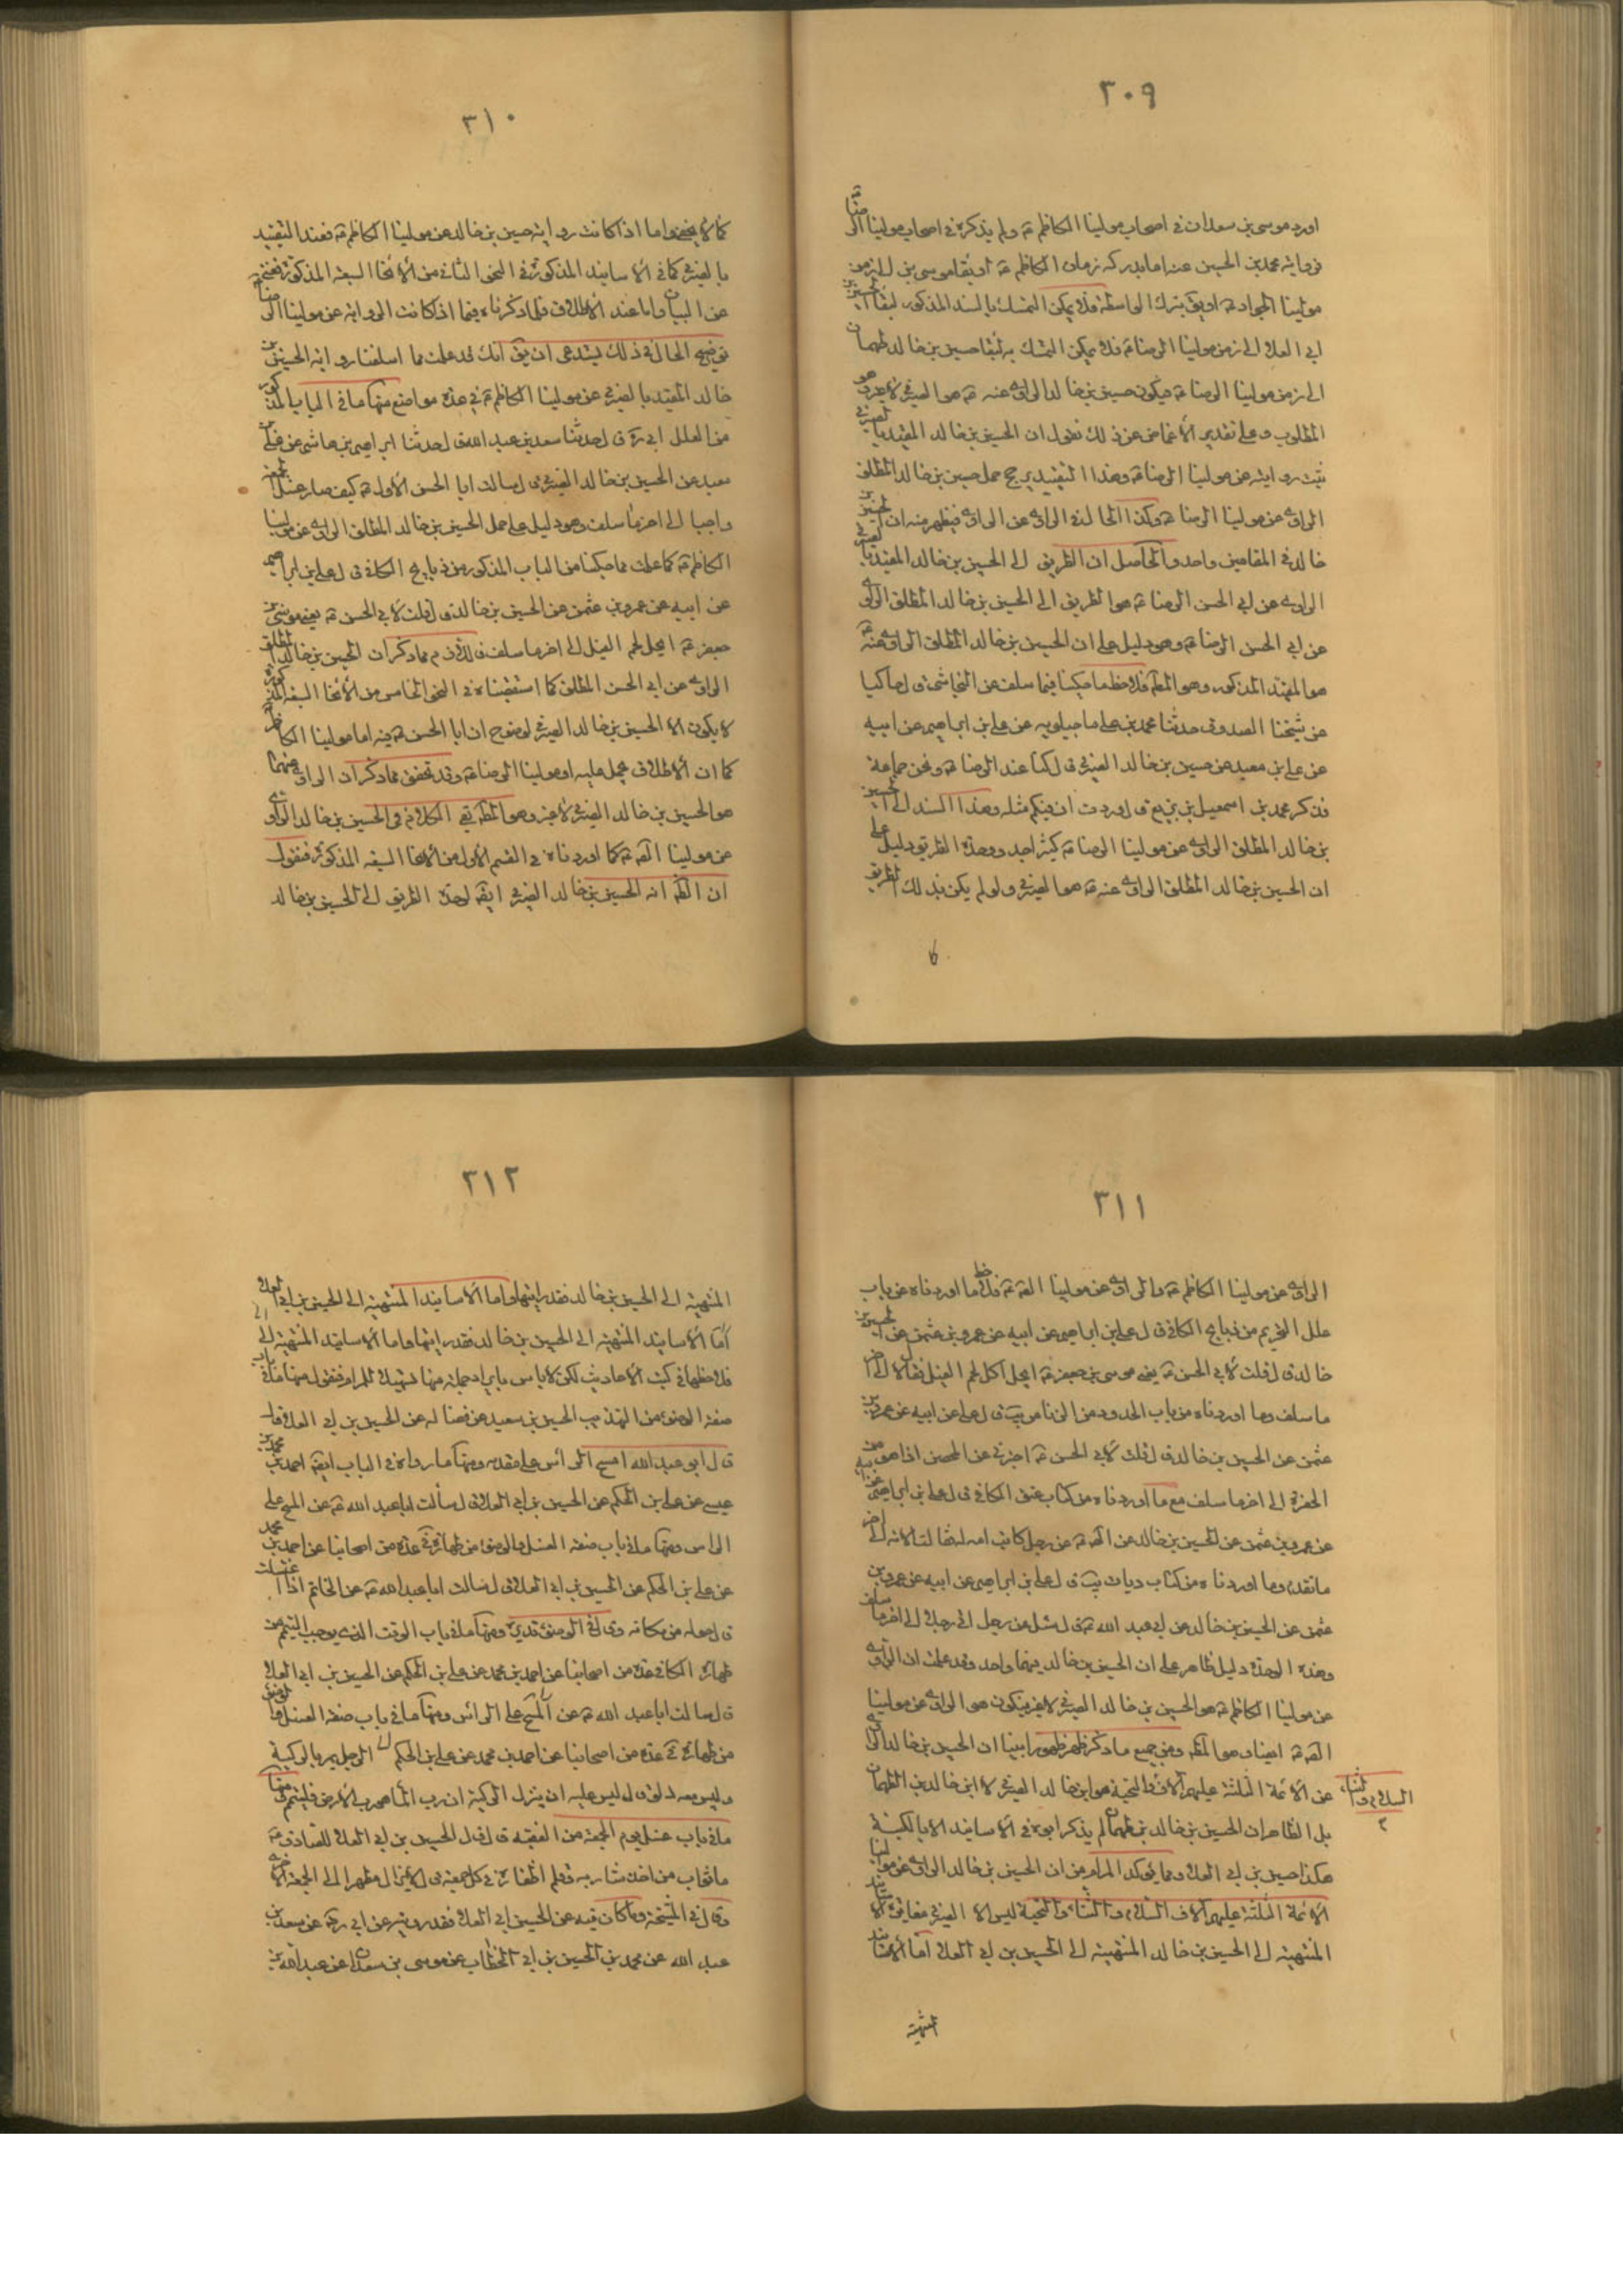 ٣٠٩
اورد موسى بن سعدان في اصحاب مولينا الكاظم ع ولم يذكره في اصحاب مولينا الرضا ع
فرواية محمد بن الحسين عنه اما يدركه زمان الكاظم ع او بقاء موسى بن الى زمن
مولينا الجواد ع او بترك الواسطة فلا يمكن التمسك بالسند المذكور لبقاء الحسين بن
ابي العلا الى زمن مولينا الرضا ع فلا يمكن التمسك به لبقاء حسين بن خالد طهمان
الى زمن مولينا الرضا ع فيكون حسين بن خالد الراوي عنه ع هو الصيرفي لا غير وهو
المطلوب وعلى تقدير الاغماض عن ذلك نقول ان الحسين بن خالد المقيد بالصيرفي
ثبت روايته عن مولينا الرضا ع وهذا التقييد يرجح حمل حسين بن خالد المطلق
الراوي عن مولينا الرضا ع وكذا الحال في الراوي عن الراوي فيظهر منه ان الحسين بن
خالد في المقامين واحد والحاصل ان الطريق الى الحسين بن خالد المقيد بالصيرفي
الراوي عن ابي الحسن الرضا ع هو الطريق الى الحسين بن خالد المطلق الراوي
عن ابي الحسن الرضا ع وهو دليل على ان الحسين بن خالد المطلق الراوي عنه ع
هو المقيد المذكور وهو المط فلاحظ ما حكينا فيما سلف عن النجاشي ق ل حاكيا
عن شيخنا الصدوق حدثنا محمد بن علي ماجيلويه عن علي بن ابراهيم عن ابيه
عن علي بن معبد عن حسين بن خالد الصيرفي ق ل كنا عند الرضا ع ونحن جماعة
فذكر محمد بن اسمعيل بن بزيع ق ل وددت ان فيكم مثله وهذا السند الى الحسين
بن خالد المطلق الراوي عن مولينا الرضا ع كثير احد ووحدة الطريق دليل على
ان الحسين بن خالد المطلق الراوي عنه ع هو الصيرفي ولو لم يكن بذلك الطريق
٣١٠
كما لا يخفى واما اذا كانت رواية حسين بن خالد عن مولينا الكاظم ع فعند التقييد
بالصيرفي كما في الاسانيد المذكورة في النحو الثاني من الانحا السبعة المذكورة فغني
عن البيان واما عند الاطلاق فلما ذكرناه فيما اذا كانت الرواية عن مولينا الرضا ع
توضيح الحال في ذلك يستدعي ان يق انك قد علمت مما اسلفنا رواية الحسين بن
خالد المقيد بالصيرفي عن مولينا الكاظم ع في عدة مواضع منها ما في الباب المذكور
من العلل ابي ره ق ل حدثنا سعد بن عبد الله ق ل حدثنا ابراهيم بن هاشم عن علي بن
معبد عن الحسين بن خالد الصيرفي ق ل سالت ابا الحسن الاول ع كيف صار غسل الجمعة
واجبا الى اخر ما سلف وهو دليل على حمل الحسين بن خالد المطلق الراوي عن مولينا
الكاظم ع كما علمت مما حكينا من الباب المذكور من ذبايح الكافي ق ل علي بن ابراهيم
عن ابيه عن عمرو بن عثمن عن الحسين بن خالد ق ل قلت لابي الحسن ع يعني موسى بن
جعفر ع ايحل لحم الفيل الى اخر ما سلف مما ذكر ان الحسين بن خالد المطلق
الراوي عن ابي الحسن المطلق كما استقصيناه في النحو الخامس من الانحا السبعة المذكورة
لا يكون الا الحسين بن خالد الصيرفي لوضوح ان ابا الحسن ع فيه اما مولينا الكاظم
كما ان الاطلاق يحمل عليه او مولينا الرضا ع وقد تحقق مما ذكر ان الراوي عنهما
هو الحسين بن خالد الصيرفي لا غير وهو المط بقي الكلام في الحسين بن خالد الراوي
عن مولينا الص ع كما اوردناه في القسم الاول من الانحا السبعة المذكورة فنقول
ان الظ انه الحسين بن خالد الصيرفي ايض لوحدة الطريق الى الحسين بن خالد
٣١١
الراوي عن مولينا الكاظم ع والراوي عن مولينا الص ع فلاحظ ما اوردناه عن باب
علل التحريم من ذبايح الكافي ق ل علي بن ابراهيم عن ابيه عن عمرو بن عثمن عن الحسين بن
خالد ق ل قلت لابي الحسن ع يعني موسى بن جعفر ع ايحل اكل لحم الفيل فقال لا الى اخر
ما سلف وما اوردناه من باب الحدود من الزنا من يب ق ل علي عن ابيه عن عمرو بن
عثمن عن الحسين بن خالد ق ل قلت لابي الحسن ع اخبرني عن المحصن اذا هو من
الحفرة الى اخر ما سلف مع ما اوردناه من كتاب عتق الكافي ق ل علي بن ابراهيم عن ابيه
عن عمرو بن عثمن عن الحسين بن خالد عن الص ع عن رجل كاتب امه له فقالت الامه الى اخر
ما تقدم وما اوردناه من كتاب ديات يب ق ل علي بن ابراهيم عن ابيه عن عمرو بن
عثمن عن الحسين بن خالد عن ابي عبد الله ع ق ل سئل عن رجل اتى رجلا الى اخر ما سلف
وهذه الوحدة دليل ظاهر على ان الحسين بن خالد فيهما واحد وقد علمت ان الراوي
عن مولينا الكاظم ع هو الحسين بن خالد الصيرفي لا غير فيكون هو الراوي عن مولينا
الص ع ايضا وهو المط ومن جميع ما ذكر ظهر ظهورا بينا ان الحسين بن خالد الراوي
عن الائمة الثلثة عليهم الاف والتحية هو ابن خالد الصيرفي لا ابن خالد بن الطهمان
السلام والثناء
بل الظاهر ان الحسين بن خالد بن طهمان لم يذكر ابوه في الاسانيد الا بالكنية
هكذا حسين بن ابي العلا ومما يؤكد المرام من ان الحسين بن خالد الراوي عن موالينا
الائمة الثلثة عليهم الاف السلام والثناء والتحية ليس الا الصيرفي مغايرة الاسانيد
المنتهية الى الحسين بن خالد المنتهية الى الحسين بن ابي العلا اما الاسانيد
المنتهية
٣١٢
المنتهية الى الحسين بن خالد فقد رايتها واما الاسانيد المنتهية الى الحسين بن ابي العلا
اما الاسانيد المنتهية الى الحسين بن خالد فقد رايتها واما الاسانيد المنتهية الى
فلاحظها في كتب الاحاديث لكن لا باس بايراد جملة منها تسهيلا للمرام فنقول منها ما في باب
صفة الوضوء من التهذيب الحسين بن سعيد عن فضاله عن الحسين بن ابي العلا قال
ق ل ابو عبد الله امسح الراس على مقدمه ومنها ما رواه في الباب ايض احمد بن محمد بن
عيسى عن علي بن الحكم عن الحسين بن ابي العلا ق ل سألت ابا عبد الله ع عن المسح على
الراس ومنها ما في باب صفة الغسل والوضوء من طهارة في عدة من اصحابنا عن احمد بن محمد
عن علي بن الحكم عن الحسين بن ابي العلا ق ل سالت ابا عبد الله ع عن الخاتم اذا اغتسلت
ق ل حوله من مكانه وق ل في الوضوء تديره ومنها ما في باب الوقت الذي يوجب التيمم من
طهارة الكافي عدة من اصحابنا عن احمد بن محمد عن علي بن الحكم عن الحسين بن ابي العلا
ق ل سالت ابا عبد الله ع عن المسح على الراس ومنها ما في باب صفة الغسل والوضوء
من طهارة في عدة من اصحابنا عن احمد بن محمد عن علي بن الحكم الرجل يمر بالركية
وليس معه دلو ق ل ليس عليه ان ينزل الركية ان رب الماء هو رب الارض فليتيمم ومنها
ما في باب غسل يوم الجمعة من الفقيه ق ل ق ل الحسين بن ابي العلا للصادق ع
ما ثواب من اخذ شاربه وقلم اظفاره في كل جمعة ق ل لا يزال مطهرا الى الجمعة الاخرى
وقال في المشيخة وما كان فيه عن الحسين بن ابي العلا فقد رويته عن ابي ره عن سعد بن
عبد الله عن محمد بن الحسين بن ابي الخطاب عن موسى بن سعدان عن عبد الله بن